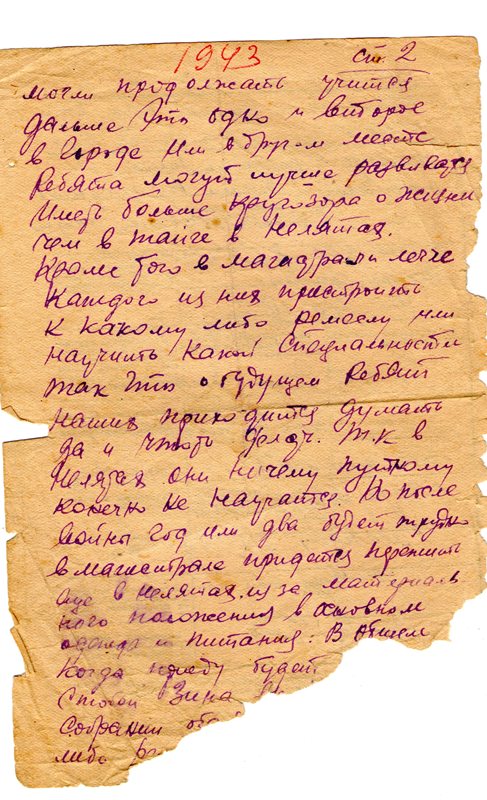 1943 ст. 2
могли продолжать учится
дальше Это одно и второе
в городе или в другом месте
Ребята могут лучше развиватся
Иметь больше кругозора о жизни
чем в тайге в Нелятах.
Кроме того в магистрали легче
Каждого из них пристроить
к какому либо ремеслу или
научить Какой Специальности
так что о будущем Ребят
наших приходится думать
да и чтоб Т.К в
Нелятах они ничему путному
конечно не научатся. Но после
войны год или два будет трудно
в магистрале придется пережить
еще в Нелятах, из за материаль
ного положения в основном
одежда и питания: В общем
Когда приеду будет
с тобой Зина
Собрании
либо